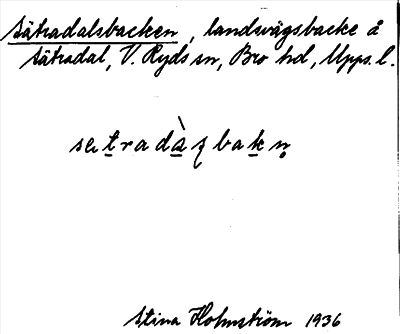 Sätradalsbacken, landsvägsbacke å
Sätradal, V. Ryds sn, Bro hd, Upps. l.
sætradàʒbakn̥
Stina Holmström 1936